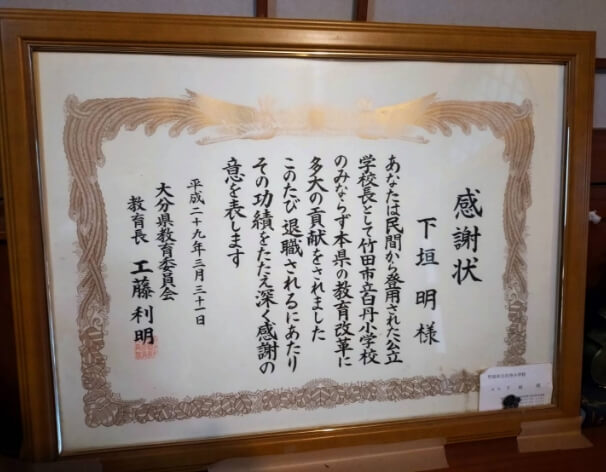 感謝状
下垣 明 様
あなたは民間から登用された公立
学校長として竹田市立白丹小学校
のみならず本県の教育改革に
多大の貢献をされました
このたび退職されるにあたり
その功績をたたえ深く感謝の
意を表します
平成二十九年三月三十一日
大分県教育委員会
教育長 工藤利明